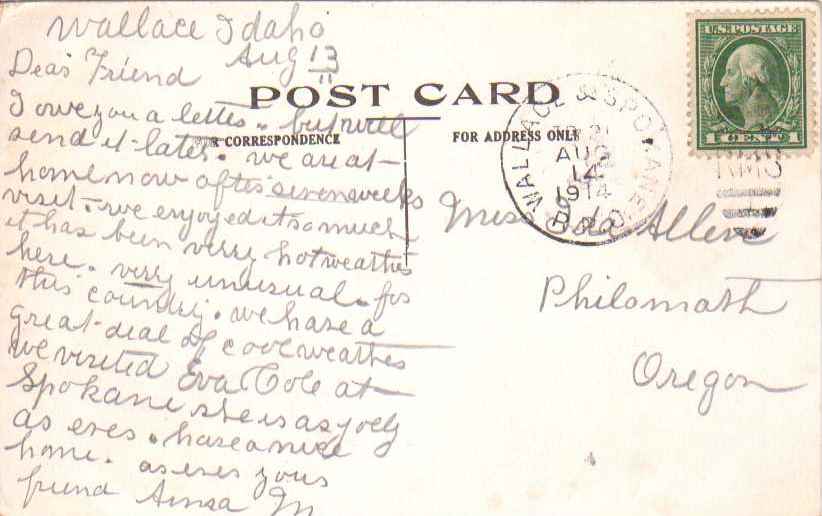 Wallace Idaho
Aug 13
11
Dear Friend
POST CARD
I owe you a letter. but will
send it later. we are at
FOR CORRESPONDENCE
FOR ADDRESS ONLY
home now after seven weeks
visit. we enjoyed it so much
it has been very hot weather
here. very unusual for
this country. we have a
great deal of cool weather
we visited Eva Cole at
Spokane she is as jolly
as ever. have a nice
home. as ever your
friend M
U.S. POSTAGE
1 CENT 1
WALLACE & SPOKANE
AUG
14
1914
R.P.O.
RMS
Miss Allen
Philomath
Oregon